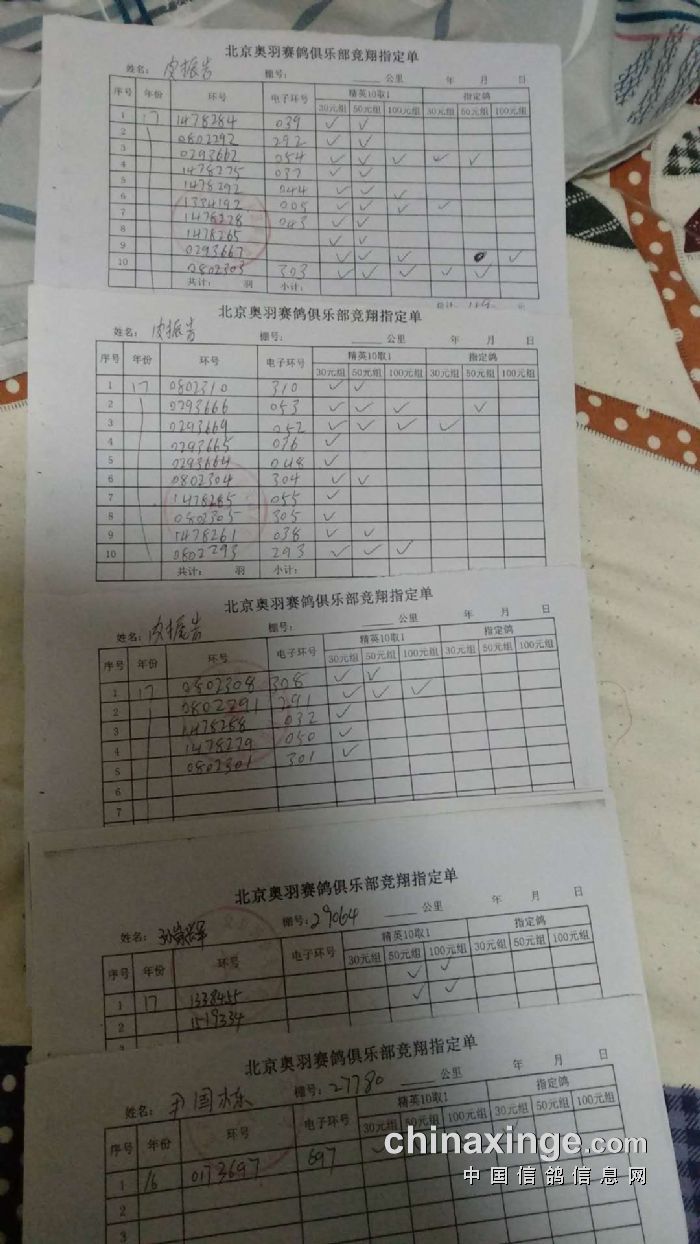 北京奥羽赛鸽俱乐部竞翔指定单
姓名： 皮振岩 棚号： 公里 年 月 日
序号 年份 环号 电子环号 精英10取1 指定鸽
30元组 50元组 100元组 30元组 50元组 100元组
1 17 1478284 039 ✓ ✓
2 0802292 292 ✓ ✓
3 0293662 054 ✓ ✓ ✓ ✓ ✓
4 1478275 037 ✓ ✓
5 1478292 044 ✓ ✓ ✓
6 1334192 005 ✓ ✓ ✓ ✓
7 1478278 043 ✓ ✓
8 1478265 ✓ ✓
9 0293667 ✓ ✓ ✓ ✓
10 0802303 303 ✓ ✓ ✓ ✓ ✓
共计： 羽 小计：
北京奥羽赛鸽俱乐部竞翔指定单
姓名： 皮振岩 棚号： 公里 年 月 日
序号 年份 环号 电子环号 精英10取1 指定鸽
30元组 50元组 100元组 30元组 50元组 100元组
1 17 0802310 310 ✓ ✓
2 0293666 053 ✓ ✓ ✓ ✓
3 0293669 052 ✓ ✓ ✓ ✓
4 0293665 036 ✓
5 0293664 048 ✓
6 0802304 304 ✓ ✓
7 1478285 055 ✓
8 0802305 305 ✓
9 1478261 038 ✓ ✓
10 0802293 293 ✓ ✓ ✓
共计： 羽 小计：
北京奥羽赛鸽俱乐部竞翔指定单
姓名： 皮振岩 棚号： 公里 年 月 日
序号 年份 环号 电子环号 精英10取1 指定鸽
30元组 50元组 100元组 30元组 50元组 100元组
1 17 0802308 308 ✓ ✓
2 0802291 291 ✓ ✓ ✓
3 1478288 032 ✓
4 1478279 050 ✓
5 0802301 301 ✓
6
7
北京奥羽赛鸽俱乐部竞翔指定单
姓名： 棚号： 29064 公里 年 月 日
序号 年份 环号 电子环号 精英10取1 指定鸽
30元组 50元组 100元组 30元组 50元组 100元组
1 17 1338455 ✓ ✓
2 1519334 ✓ ✓
北京奥羽赛鸽俱乐部竞翔指定单
姓名： 尹国栋 棚号： 27780 公里 年 月 日
序号 年份 环号 电子环号 精英10取1 指定鸽
30元组 50元组 100元组 30元组 50元组 100元组
1 16 0173697 697
2
3
chinaxinge.com
中国信鸽信息网